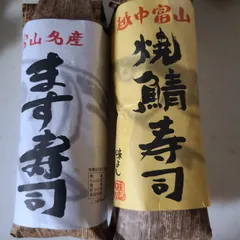 富山名産
ます寿司
越中富山
焼鯖寿司
味よし